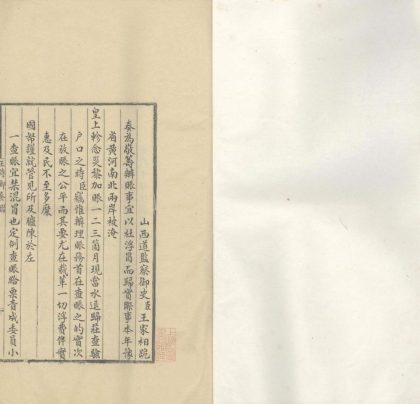 山西道監察御史臣王家相跪
奏為嚴籌辦賑事宜以杜浮冒而歸實際事本年豫
省黃河南北兩岸被淹
皇上軫念災黎加賑一二三箇月現當水退歸莊查驗
戶口之時臣竊惟辦理賑務首在查賑之的實次
在放賑之公平而其要尤在裁革一切浮費俾實
惠及民不至多糜
國帑謹就管見所及臚陳於左
一查賑宜禁混冒也定例查賑給票責成委員小